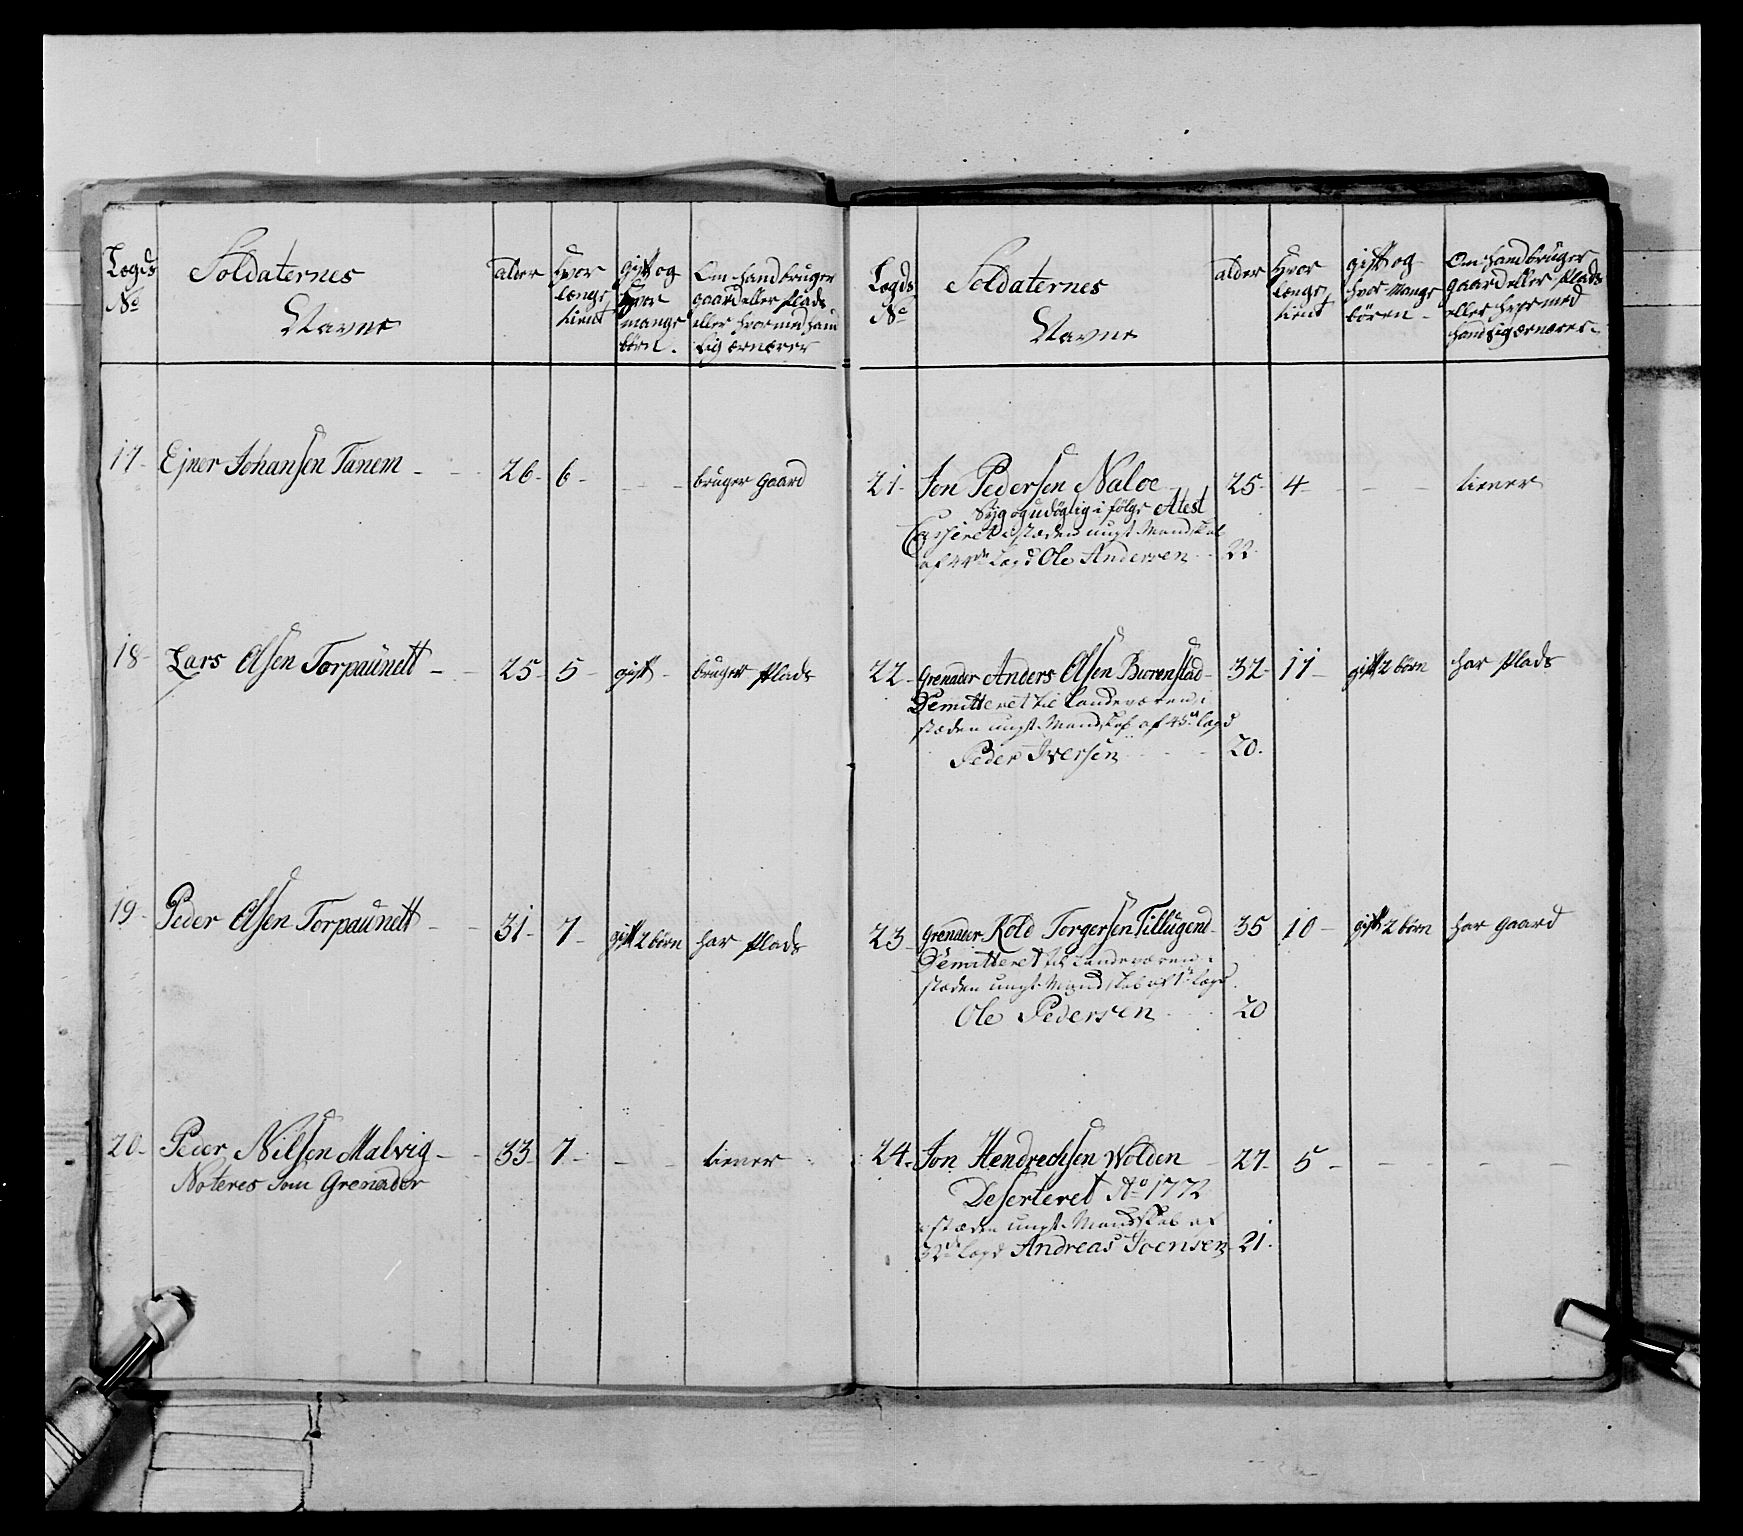 Lægds
No
Soldaternes
Navne
alder
Hvor
længe
tient
Gift og
Hvor
mange
børn.
Om hand bruger
gaard eller Plads
eller hvormed hand
sig ærnærer
17- Ejner Johansen Tanem - 26- 6- - - bruger Gaard
18- Lars Olsen Torpaunett - 25- 5- gift - bruger Plads
19- Peder Olsen Torpaunett - 31- 7- gift 2 børn har Plads
20- Peder Nilsen Malvig - 33- 7- - - tiener
Noteres som Grenader
Lægds
No
Soldaternes
Navne
alder
Hvor
længe
tient
gift og
hvor mange
børen -
Om hand bruger
Gaard eller Plads
eller hvormed
hand sig ærnærer.
21- Jon Pedersen Naloe 25- 4- - - tiener
Syg og udøglig i følge Atest
Casseret i stæden ungt Mandskab
af 44de Lægd Ole Andersen - 22
22- Grenader Anders Olsen Biorenstad- 32- 11- gift 2 børn har Plads
Demitteret til Landeværen i
stæden ungt Mandskab af 45de lægd
Peder Iversen - 20.
23- Grenader Kold Torgersen Tillugend- 35 10- gift 2 børn har Gaard
Demitteret til Landeværen i
stæden ungt Mandskab af 1te Lægd.
Ole Pedersen - 20
24- Jon Hendrechsen Wolden - 27- 5- - - - -
Deserteret Ao 1772
i stæden ungt Mandskab af
32de Lægd Andreas Joensen - 21.